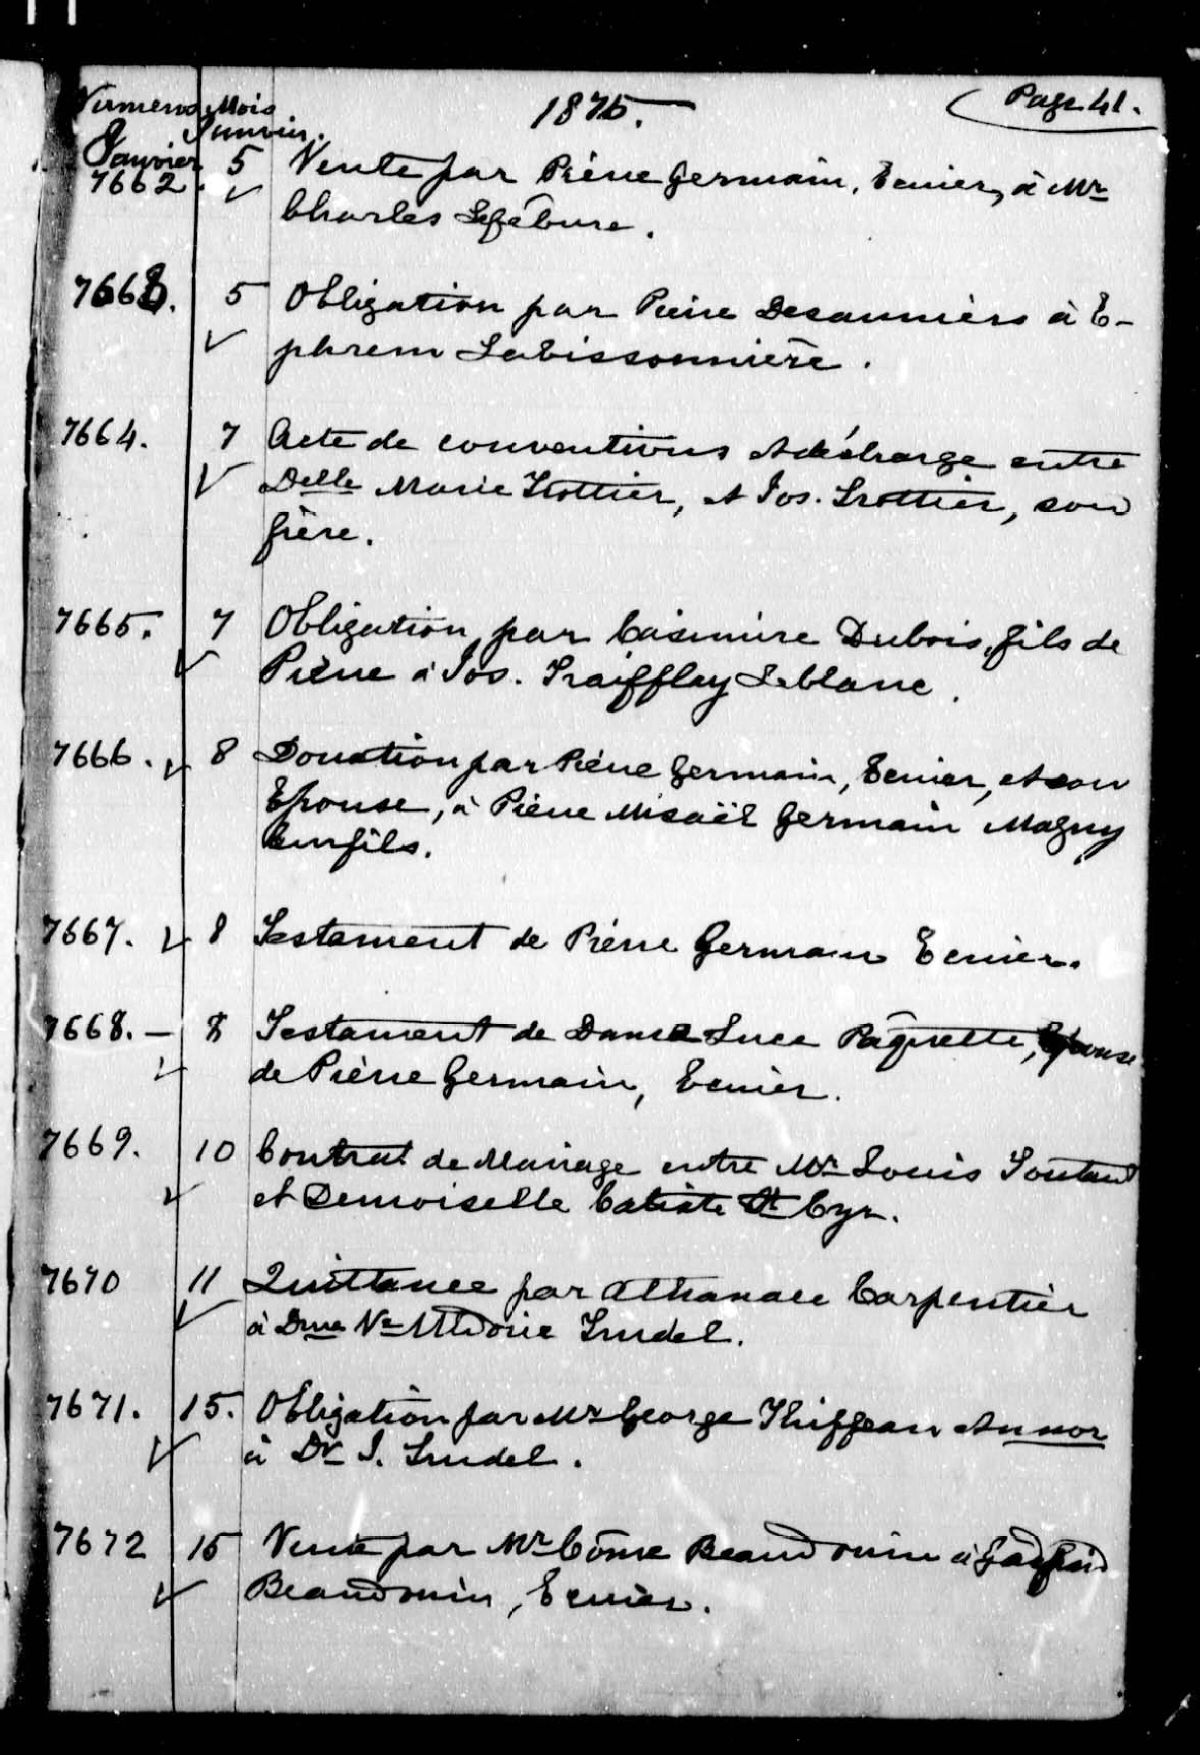 Numéros Mois 1875. Page 41.
Janvier.
Janvier 5 Vente par Pierre Germain, Ecuier, à Mr
7662. Charles Lefebure.
7663. 5 Obligation par Pierre Desauniers à E-
phrem Labissonnière.
7664. 7 Acte de conventions et décharge entre
Delle Marie Trottier, et Jos. Trottier, son
frère.
7665. 7 Obligation par Casimire Dubois, fils de
Pierre à Jos. Traifflay Leblanc.
7666. 8 Donation par Pierre Germain, Ecuier, et son
Epouse, à Pierre Misaël Germain Magny
leur fils.
7667. 8 Testament de Pierre Germain Ecuier.
7668. 8 Testament de Dame Luce Pâquette, Epouse
de Pierre Germain, Ecuier.
7669. 10 Contrat de Mariage entre Mr Louis Toutant
et Demoiselle St Cyr.
7670 11 Quittance par Athanase Carpentier
à Dme Ve Trudel.
7671. 15. Obligation par Mr George Thiffeau et uxor
à Dr J. Trudel.
7672 15 Vente par Mr Côme Beaudouin à
Beaudouin, Ecuier.